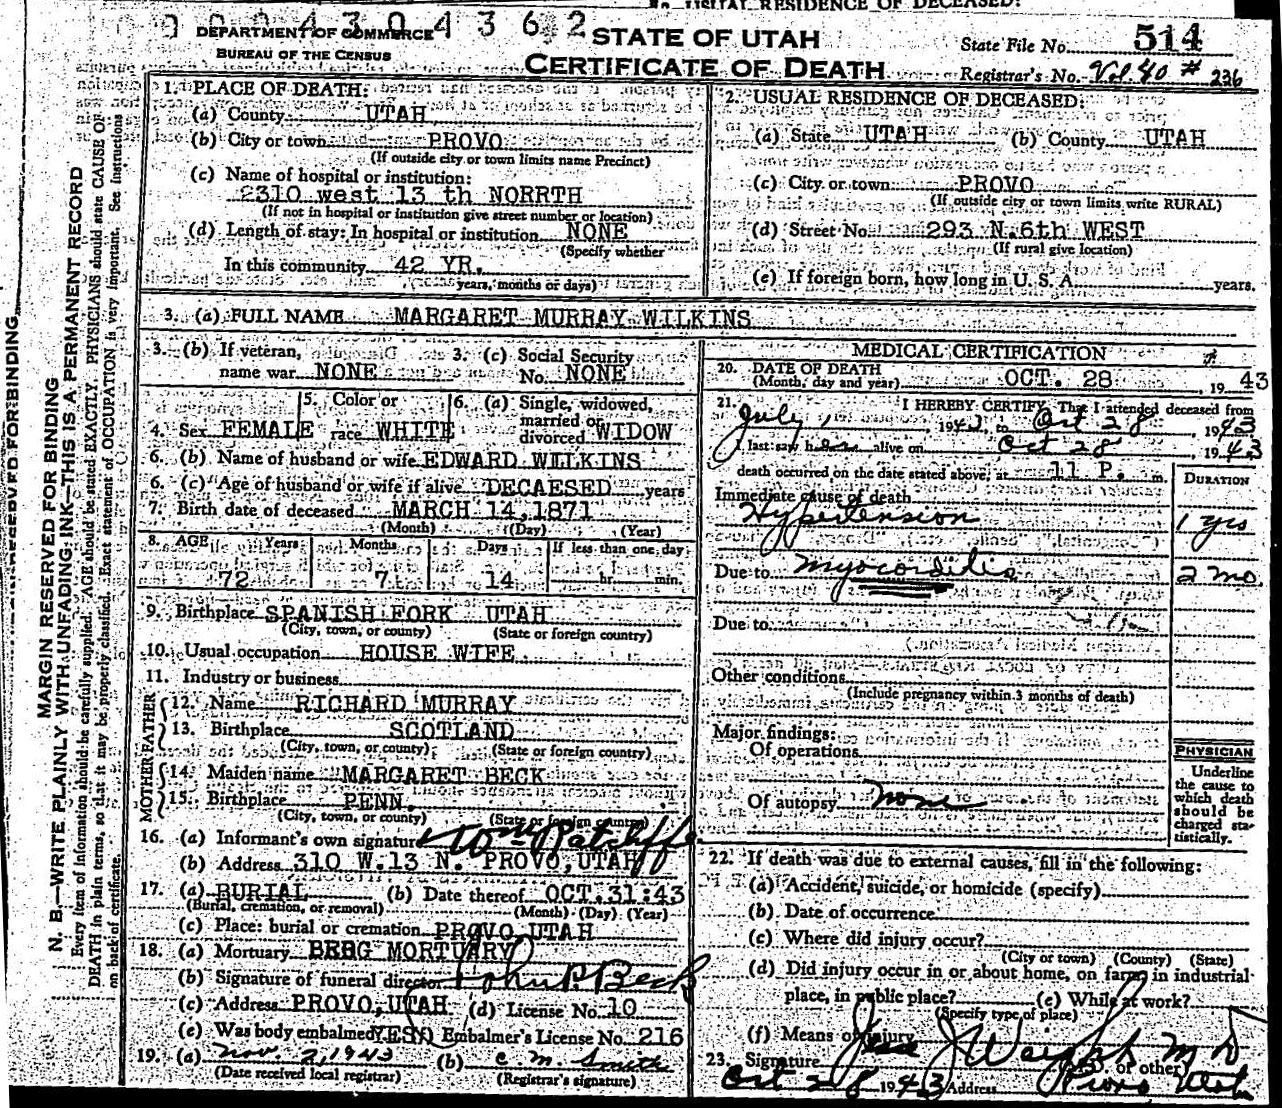 USUAL RESIDENCE OF DECEASED:
0004304362
DEPARTMENT OF COMMERCE
BUREAU OF THE CENSUS
STATE OF UTAH
CERTIFICATE OF DEATH
State File No. 514
Registrar's No. Vol 40 # 236
MARGIN RESERVED FOR BINDING
N. B.—WRITE PLAINLY WITH UNFADING INK—THIS IS A PERMANENT RECORD
Every item of information should be carefully supplied. AGE should be stated EXACTLY. PHYSICIANS should state CAUSE OF
DEATH in plain terms, so that it may be properly classified. Exact statement of OCCUPATION is very important. See instructions
on back of certificate.
1. PLACE OF DEATH:
(a) County UTAH
(b) City or town PROVO
(If outside city or town limits name Precinct)
(c) Name of hospital or institution:
2310 west 13 th NORRTH
(If not in hospital or institution give street number or location)
(d) Length of stay: In hospital or institution NONE
(Specify whether
In this community 42 YR.
years, months or days)
2. USUAL RESIDENCE OF DECEASED:
(a) State UTAH (b) County UTAH
(c) City or town PROVO
(If outside city or town limits write RURAL)
(d) Street No. 293 N.6th WEST
(If rural give location)
(e) If foreign born, how long in U. S. A. years.
3. (a) FULL NAME MARGARET MURRAY WILKINS
3. (b) If veteran, name war NONE
3. (c) Social Security No. NONE
4. Sex FEMALE
5. Color or race WHITE
6. (a) Single, widowed, married or divorced WIDOW
6. (b) Name of husband or wife EDWARD WILKINS
6. (c) Age of husband or wife if alive DECAESED years
7. Birth date of deceased MARCH 14,1871
(Month) (Day) (Year)
8. AGE Years Months Days If less than one day
72 7 14 hr. min.
9. Birthplace SPANISH FORK UTAH
(City, town, or county) (State or foreign country)
10. Usual occupation HOUSE WIFE
11. Industry or business
FATHER
12. Name RICHARD MURRAY
13. Birthplace SCOTLAND
(City, town, or county) (State or foreign country)
MOTHER
14. Maiden name MARGARET BECK
15. Birthplace PENN.
(City, town, or county) (State or foreign country)
16. (a) Informant's own signature Tom Ratcliffe
(b) Address 310 W.13 N. PROVO, UTAH
17. (a) BURIAL (b) Date thereof OCT.31:43
(Burial, cremation, or removal) (Month) (Day) (Year)
(c) Place: burial or cremation PROVO UTAH
18. (a) Mortuary BERG MORTUARY
(b) Signature of funeral director John P. Beck
(c) Address PROVO, UTAH (d) License No. 10
(e) Was body embalmed YES Embalmer's License No. 216
19. (a) Nov. 2, 1943 (b) C M. Smith
(Date received local registrar) (Registrar's signature)
MEDICAL CERTIFICATION
20. DATE OF DEATH
(Month, day and year) OCT. 28 1943
21. I HEREBY CERTIFY, That I attended deceased from
July 1, 1943 to Oct 28, 1943
I last saw her alive on Oct 28, 1943
death occurred on the date stated above, at 11 P. m.
DURATION
Immediate cause of death
Hypertension 1 yrs
Due to Myocarditis 2 mo.
Due to
Other conditions
(Include pregnancy within 3 months of death)
Major findings:
Of operations
Of autopsy none
PHYSICIAN
Underline
the cause to
which death
should be
charged sta-
tistically.
22. If death was due to external causes, fill in the following:
(a) Accident, suicide, or homicide (specify)
(b) Date of occurrence
(c) Where did injury occur?
(City or town) (County) (State)
(d) Did injury occur in or about home, on farm, in industrial
place, in public place? (e) While at work?
(Specify type of place)
(f) Means of injury
23. Signature M D or other
Oct 28 1943 Address Provo Utah